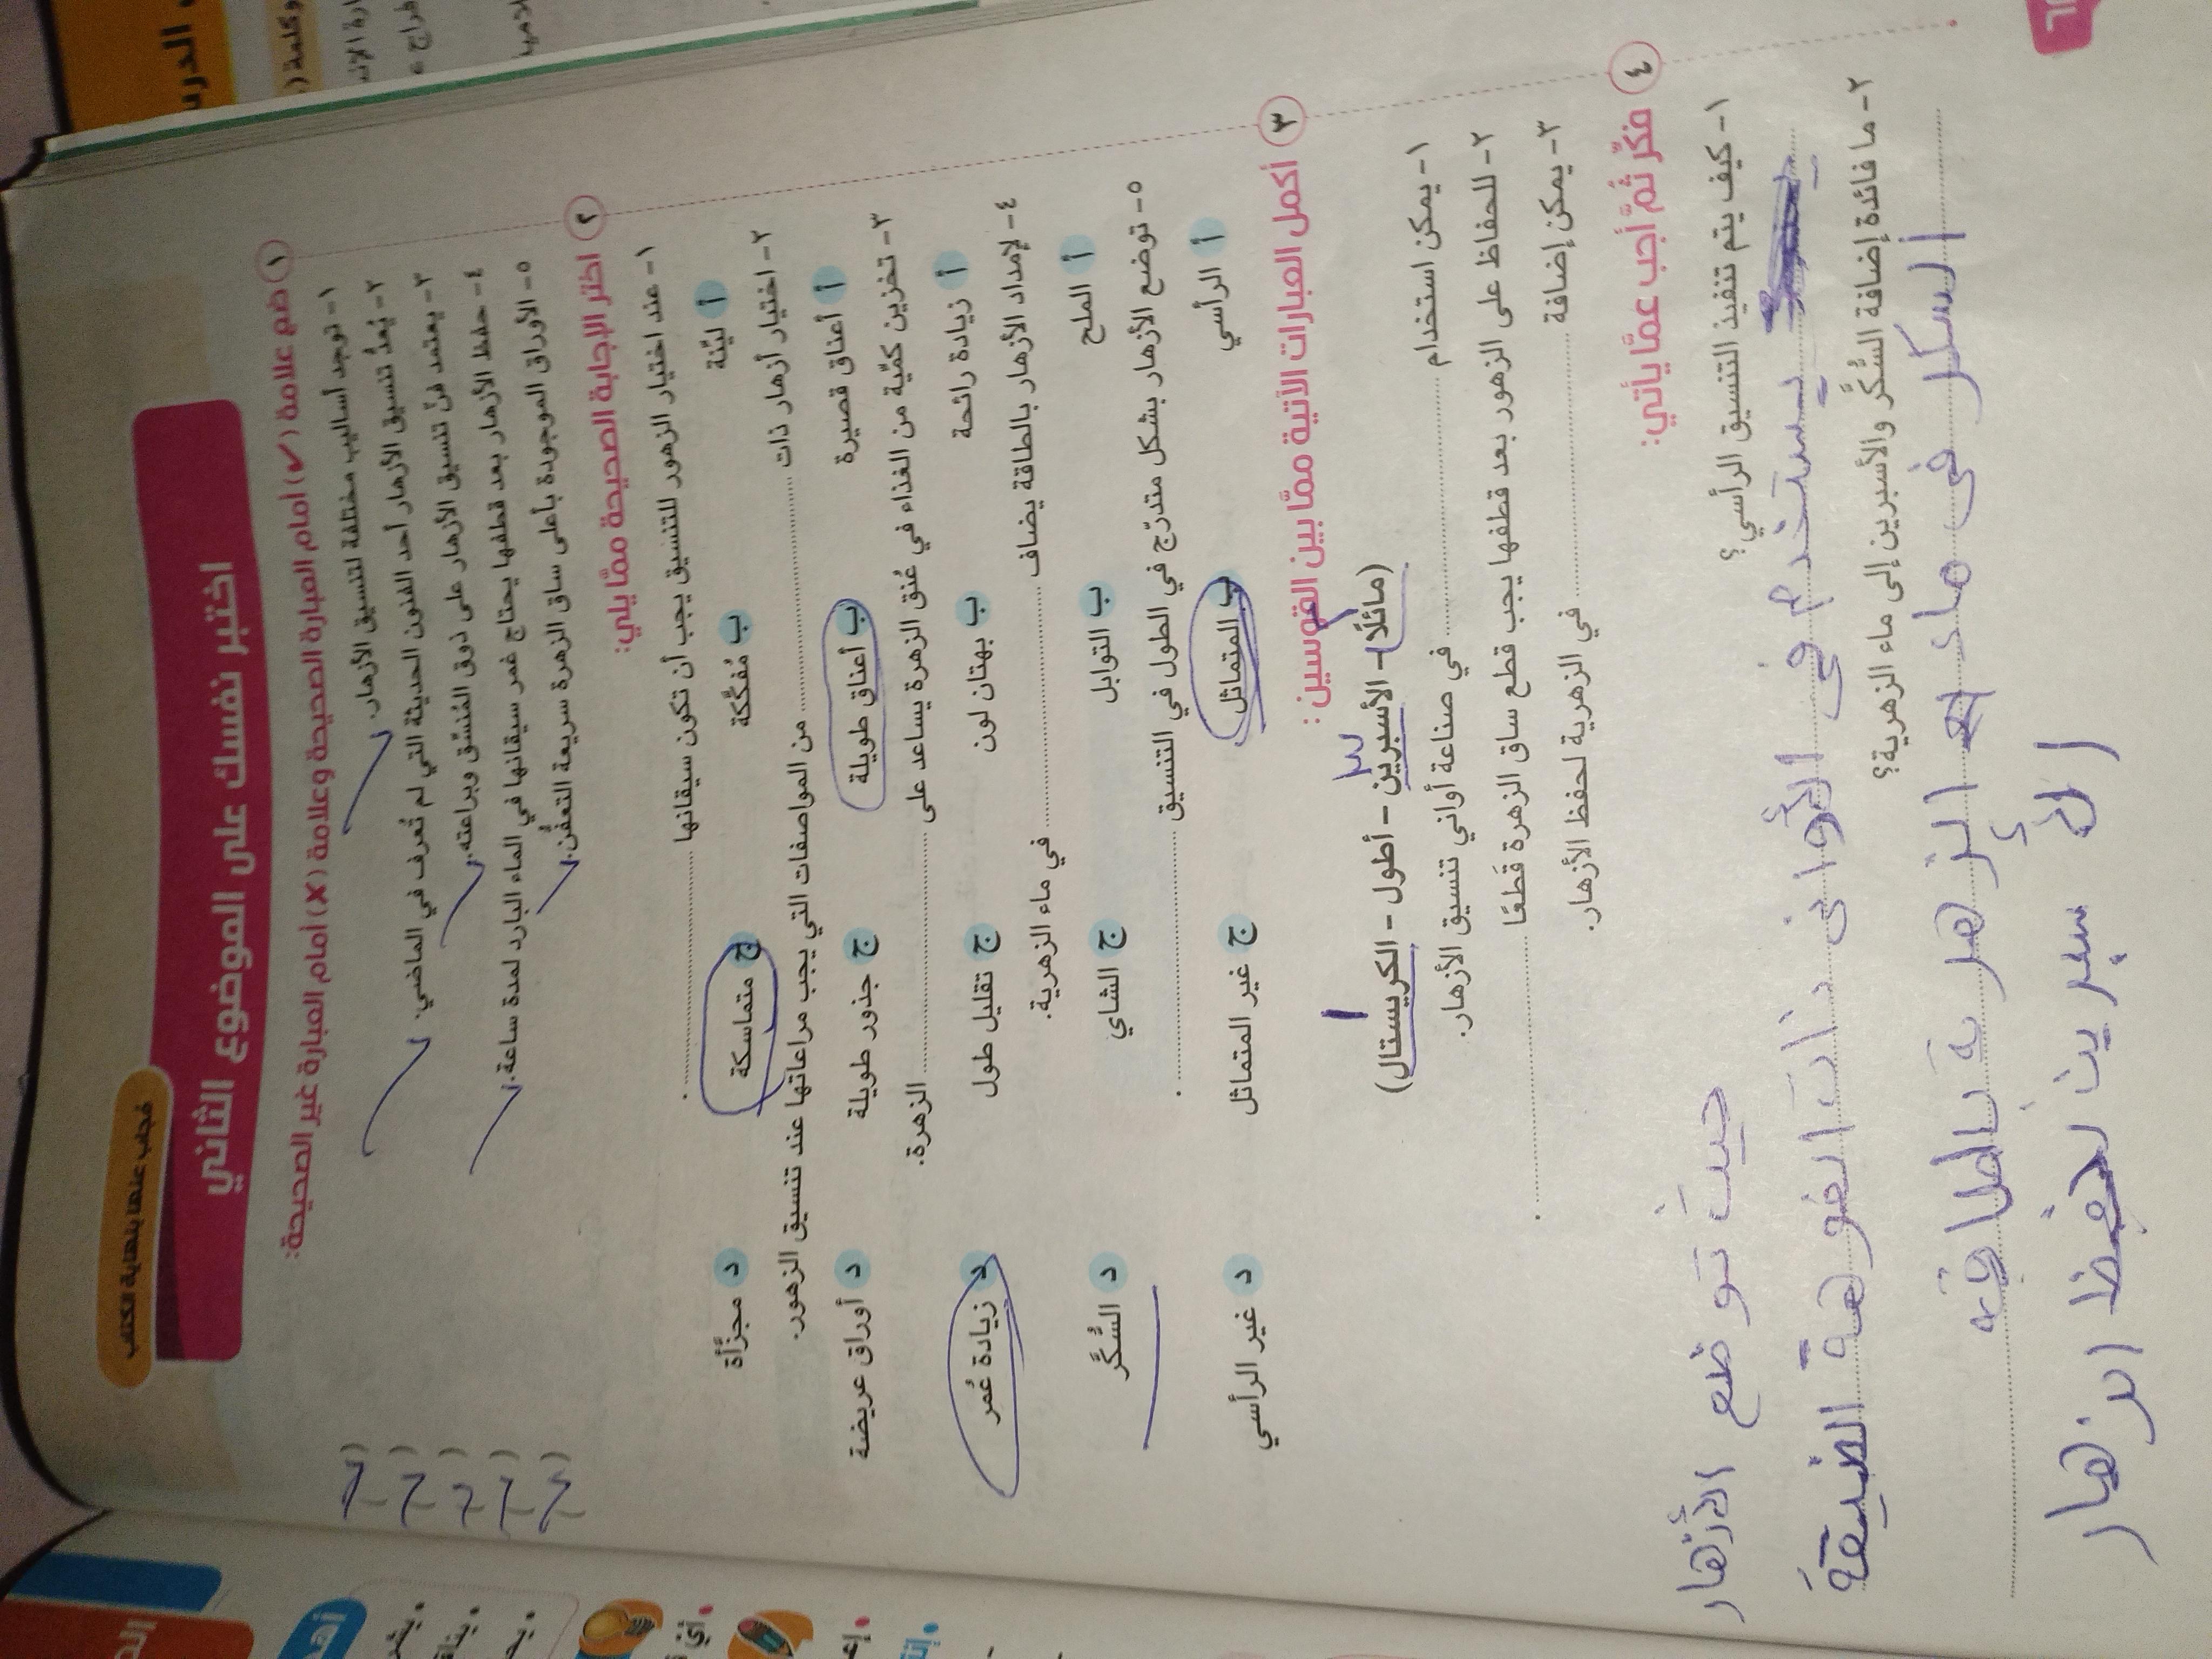 مُجاب عنها بنهاية الكتاب
اختبر نفسك على الموضوع الثاني
١ ضع علامة (✓) أمام العبارة الصحيحة وعلامة (✗) أمام العبارة غير الصحيحة:
١- توجد أساليب مختلفة لتنسيق الأزهار. ( )
٢- يُعدُّ تنسيق الأزهار أحد الفنون الحديثة التي لم تُعرف في الماضي. ( )
٣- يعتمد فنّ تنسيق الأزهار على ذوق المُنسِّق وبراعته. ( )
٤- حفظ الأزهار بعد قطفها يحتاج غمر سيقانها في الماء البارد لمدة ساعة. ( )
٥- الأوراق الموجودة بأعلى ساق الزهرة سريعة التعفُّن. ( )
٢ اختر الإجابة الصحيحة ممَّا يلي:
١- عند اختيار الزهور للتنسيق يجب أن تكون سيقانها ........
أ ليِّنة ب مُفكَّكة ج متماسكة د مجزَّأة
٢- اختيار أزهار ذات ........ من المواصفات التي يجب مراعاتها عند تنسيق الزهور.
أ أعناق قصيرة ب أعناق طويلة ج جذور طويلة د أوراق عريضة
٣- تخزين كمِّية من الغذاء في عُنق الزهرة يساعد على ........ الزهرة.
أ زيادة رائحة ب بهتان لون ج تقليل طول د زيادة عُمر
٤- لإمداد الأزهار بالطاقة يضاف ........ في ماء الزهرية.
أ الملح ب التوابل ج الشاي د السُّكَّر
٥- توضع الأزهار بشكل متدرِّج في الطول في التنسيق ........
أ الرأسي ب المتماثل ج غير المتماثل د غير الرأسي
٣ أكمل العبارات الآتية ممَّا بين القوسين :
(مائلًا - الأسبرين - أطول - الكريستال)
١- يمكن استخدام ........ في صناعة أواني تنسيق الأزهار.
٢- للحفاظ على الزهور بعد قطفها يجب قطع ساق الزهرة قَطعًا ........
٣- يمكن إضافة ........ في الزهرية لحفظ الأزهار.
٤ فكِّر ثُمَّ أجب عمَّا يأتي:
١- كيف يتم تنفيذ التنسيق الرأسي؟
حيث توضع الأزهار
يستخدم فى الأوانى ذات الفوهة الضيقة
٢- ما فائدة إضافة السُّكَّر والأسبرين إلى ماء الزهرية؟
السكر فى ماء الزهرية بالطاقه
الأسبرين لحفظ الازهار